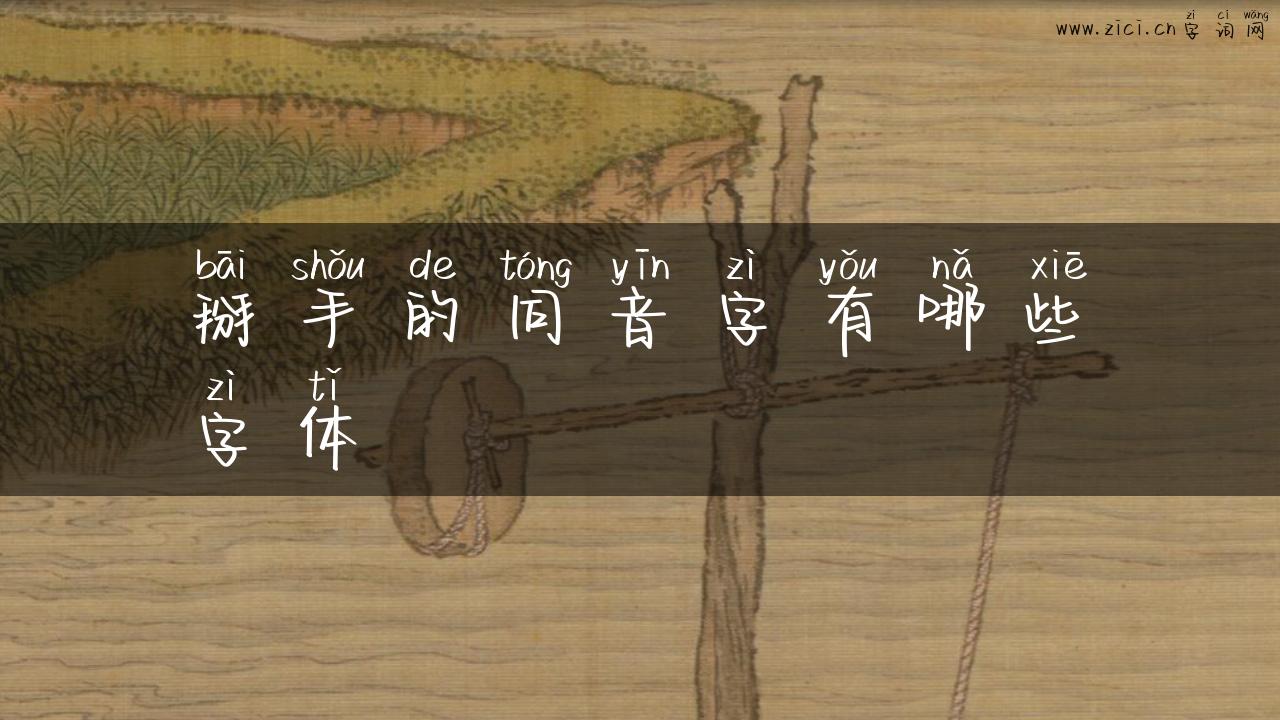 zì cí wǎng
www.zici.cn字词网
bāi shǒu de tóng yīn zì yǒu nǎ xiē
掰手的同音字有哪些
zì tǐ
字体